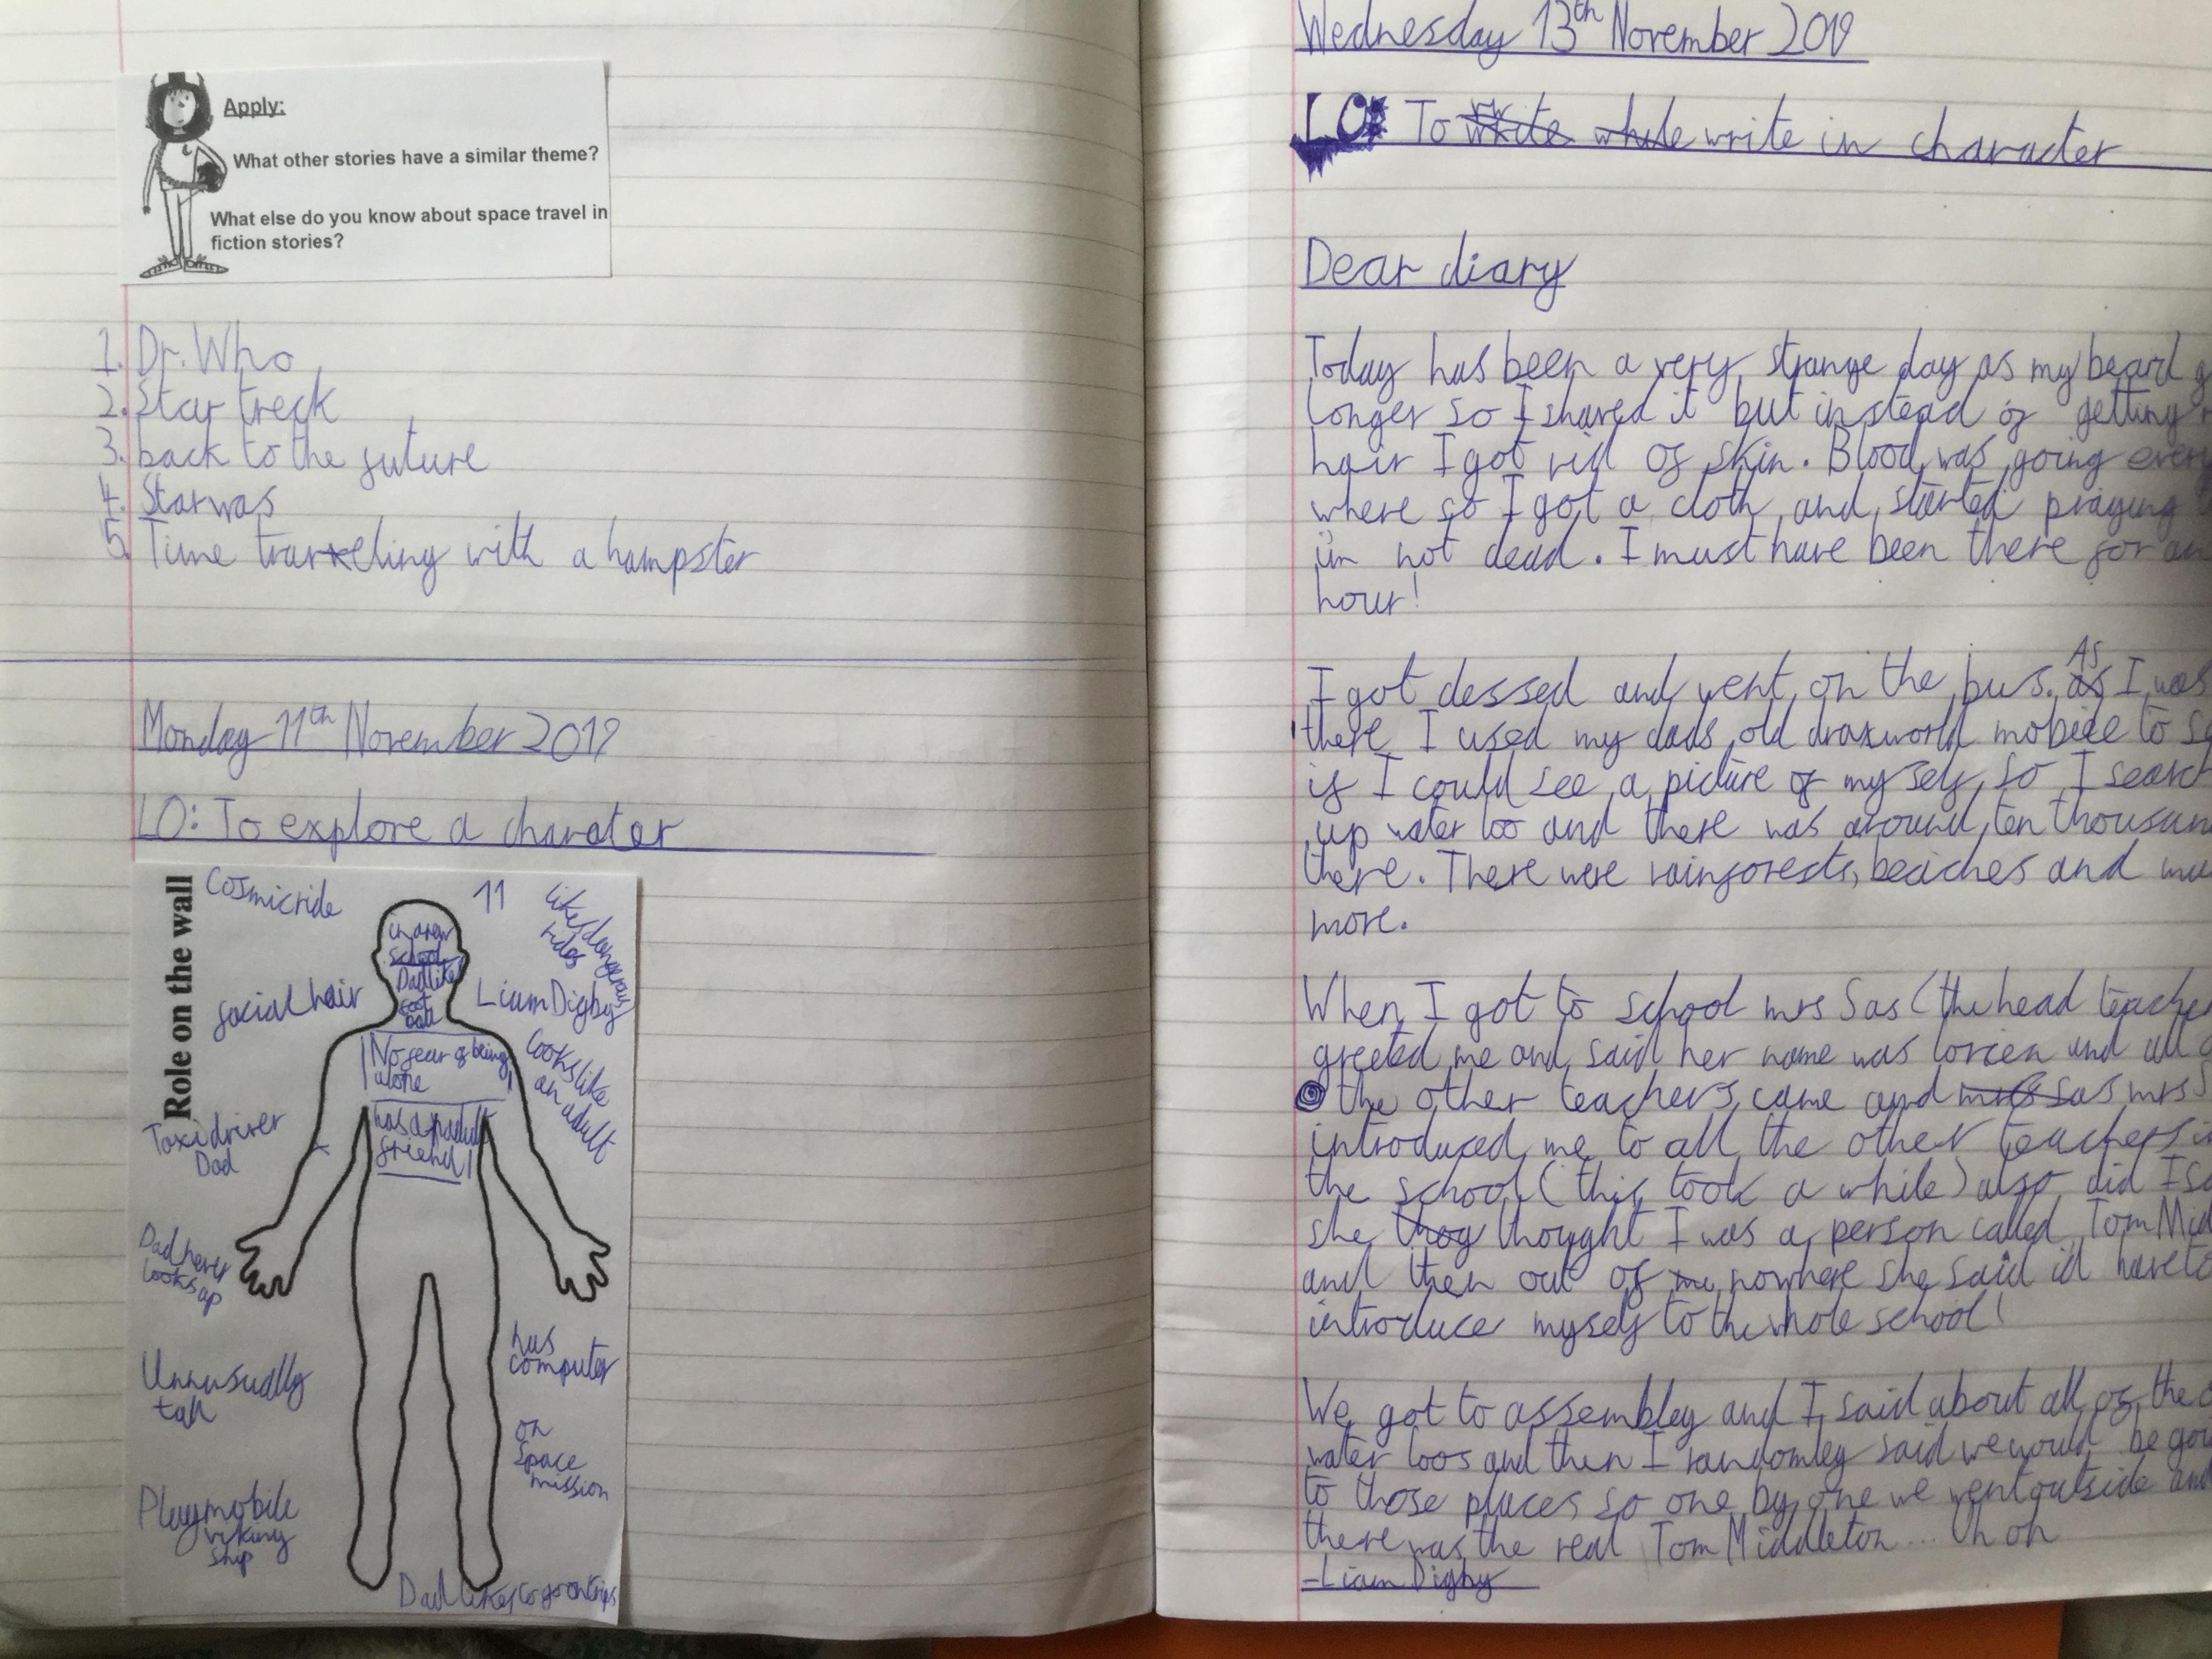 Apply:
What other stories have a similar theme?
What else do you know about space travel in
fiction stories?
1. Dr. Who
2. Star treck
3. back to the future
4. Starwas
5. Time traveling with a hampster
Monday 11th November 2019
LO: To explore a charater
Role on the wall
Cosmicride
11
likes dangerous
rides
in a new
school
Dad likes
foot
ball
facial hair
Liam Digby
No fear of being
alone
looks like
an adult
has a
friend
Taxi driver
Dad
Dad never
looks up
has
computer
Unnusually
tall
on
Space
mission
Playmobile
viking
ship
Dad likes to go on trips
Wednesday 13th November 2019
LO: To write in character
Dear diary
Today has been a very strange day as my beard
longer so I shaved it but instead of getting
hair I got rid of skin. Blood was going every
where so I got a cloth and started praying
im not dead. I must have been there for an
hour!
I got dessed and went on the bus. As I was
there I used my dads old draxworld mobile to
if I could see a picture of my self so I search
up water loo and there was around ten thousand
there. There were rainforests, beaches and
more.
When I got to school mrs Sas (the head teacher
greeted me and said her name was lorien and all
the other teachers came and mrs S
introduced me to all the other teachers in
the school (this took a while) also did I
she thought I was a person called Tom Mid
and then out of nowhere she said id have to
introduce myself to the whole school!
We got to assembley and I said about all of the
water loos and then I randomley said we would be
to those places so one by one we went outside and
there was the real Tom Middleton... Uh oh
-Liam Digby